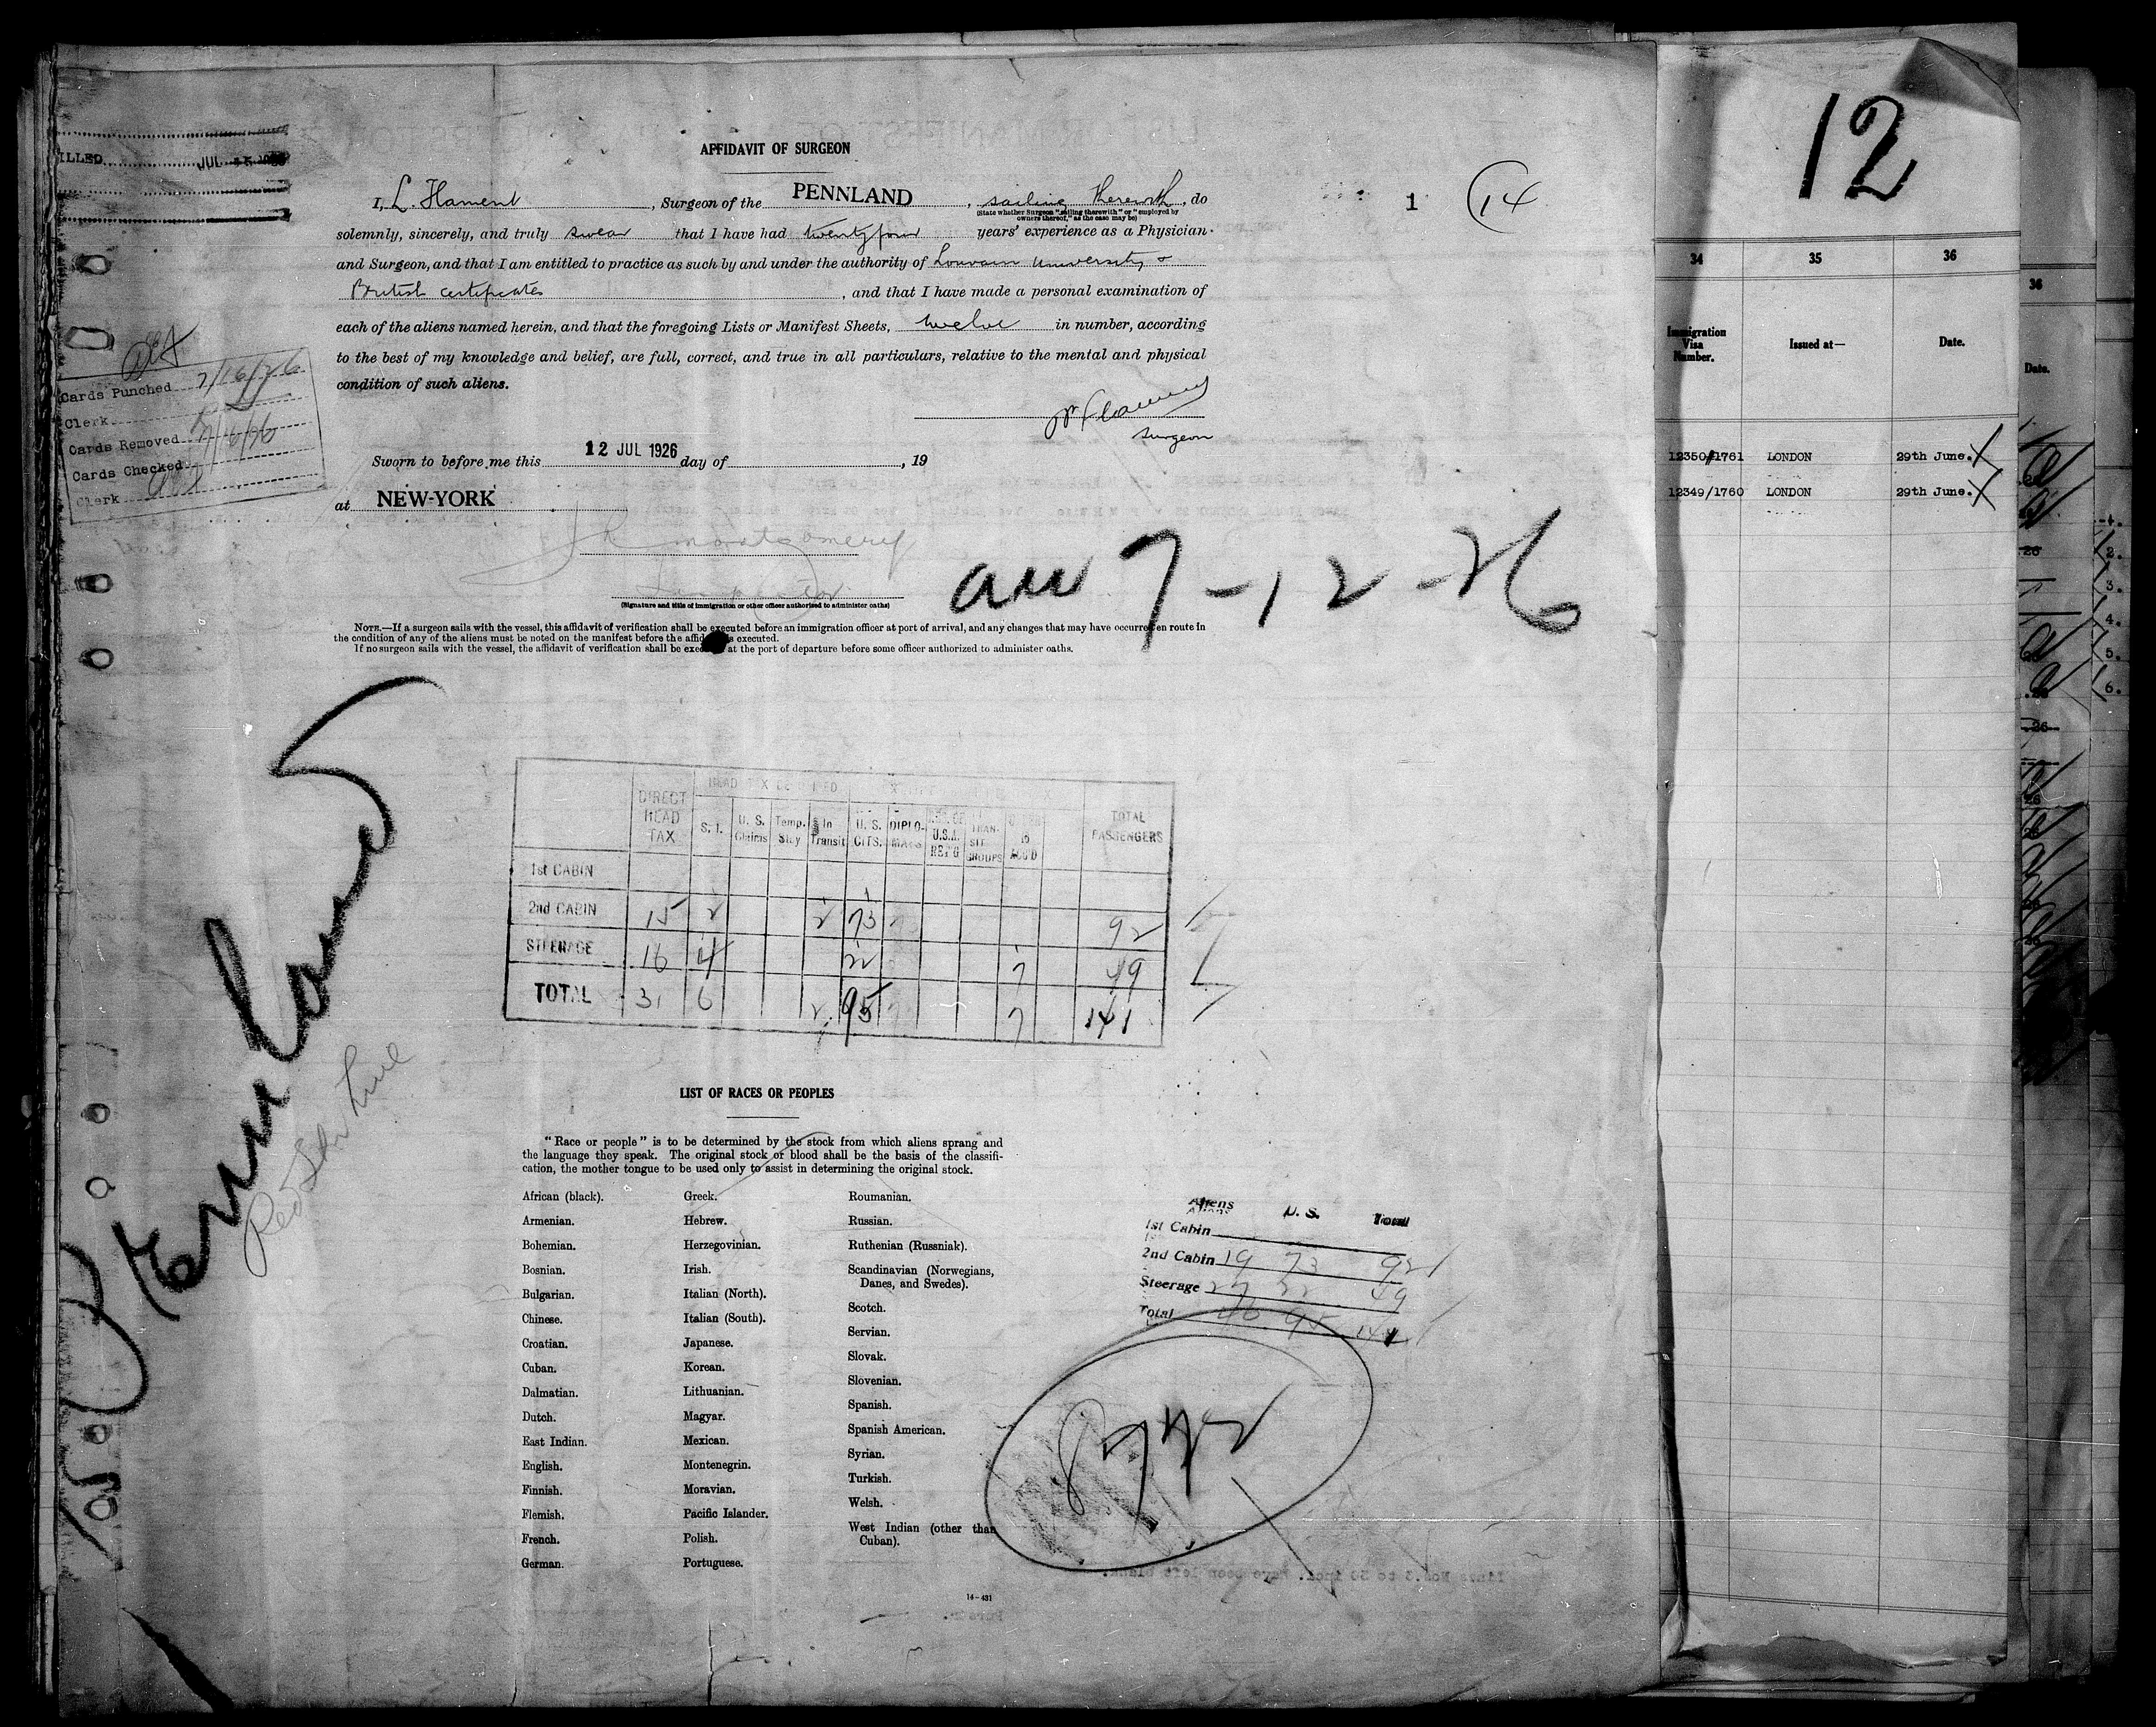 ILLED JUL 15 1926
AFFIDAVIT OF SURGEON
I, L. Flament, Surgeon of the PENNLAND, sailing therewith, do
(State whether Surgeon "sailing therewith" or "employed by
owners thereof," as the case may be)
solemnly, sincerely, and truly swear that I have had twenty four years' experience as a Physician
and Surgeon, and that I am entitled to practice as such by and under the authority of Louvain University &
British certificates, and that I have made a personal examination of
each of the aliens named herein, and that the foregoing Lists or Manifest Sheets, twelve in number, according
to the best of my knowledge and belief, are full, correct, and true in all particulars, relative to the mental and physical
condition of such aliens.
Dr Flament
Surgeon
Sworn to before me this 12 JUL 1926 day of , 19
at NEW-YORK
Montgomery
(Signature and title of immigration or other officer authorized to administer oaths)
NOTE.—If a surgeon sails with the vessel, this affidavit of verification shall be executed before an immigration officer at port of arrival, and any changes that may have occurred en route in
the condition of any of the aliens must be noted on the manifest before the affid s executed.
If no surgeon sails with the vessel, the affidavit of verification shall be exec at the port of departure before some officer authorized to administer oaths.
1 14
Cards Punched 7/16/26
Clerk
Cards Removed
Cards Checked
Clerk
arr 7-12-26
Pennland
Red Star Line
DIRECT HEAD TAX S. I. U. S. Claims Temp. Stay In Transit U. S. CITS. DIPLO-MATS U.S.A. REP'G TRAN-SIT GROUPS TOTAL PASSENGERS
1st CABIN
2nd CABIN 15 2 2 73 92
STEERAGE 16 4 22 7 49
TOTAL 31 6 2 95 7 141
LIST OF RACES OR PEOPLES
"Race or people" is to be determined by the stock from which aliens sprang and
the language they speak. The original stock or blood shall be the basis of the classifi-
cation, the mother tongue to be used only to assist in determining the original stock.
African (black).
Armenian.
Bohemian.
Bosnian.
Bulgarian.
Chinese.
Croatian.
Cuban.
Dalmatian.
Dutch.
East Indian.
English.
Finnish.
Flemish.
French.
German.
Greek.
Hebrew.
Herzegovinian.
Irish.
Italian (North).
Italian (South).
Japanese.
Korean.
Lithuanian.
Magyar.
Mexican.
Montenegrin.
Moravian.
Pacific Islander.
Polish.
Portuguese.
Roumanian.
Russian.
Ruthenian (Russniak).
Scandinavian (Norwegians,
Danes, and Swedes).
Scotch.
Servian.
Slovak.
Slovenian.
Spanish.
Spanish American.
Syrian.
Turkish.
Welsh.
West Indian (other than
Cuban).
14-431
Aliens U. S. Total
1st Cabin
2nd Cabin 19 73 92
Steerage 27 22 49
Total 46 95 141
12
34 35 36
Immigration
Visa
Number.
Issued at—
Date.
12350/1761 LONDON 29th June.
12349/1760 LONDON 29th June.
36
Date.
1.
2.
3.
4.
5.
6.